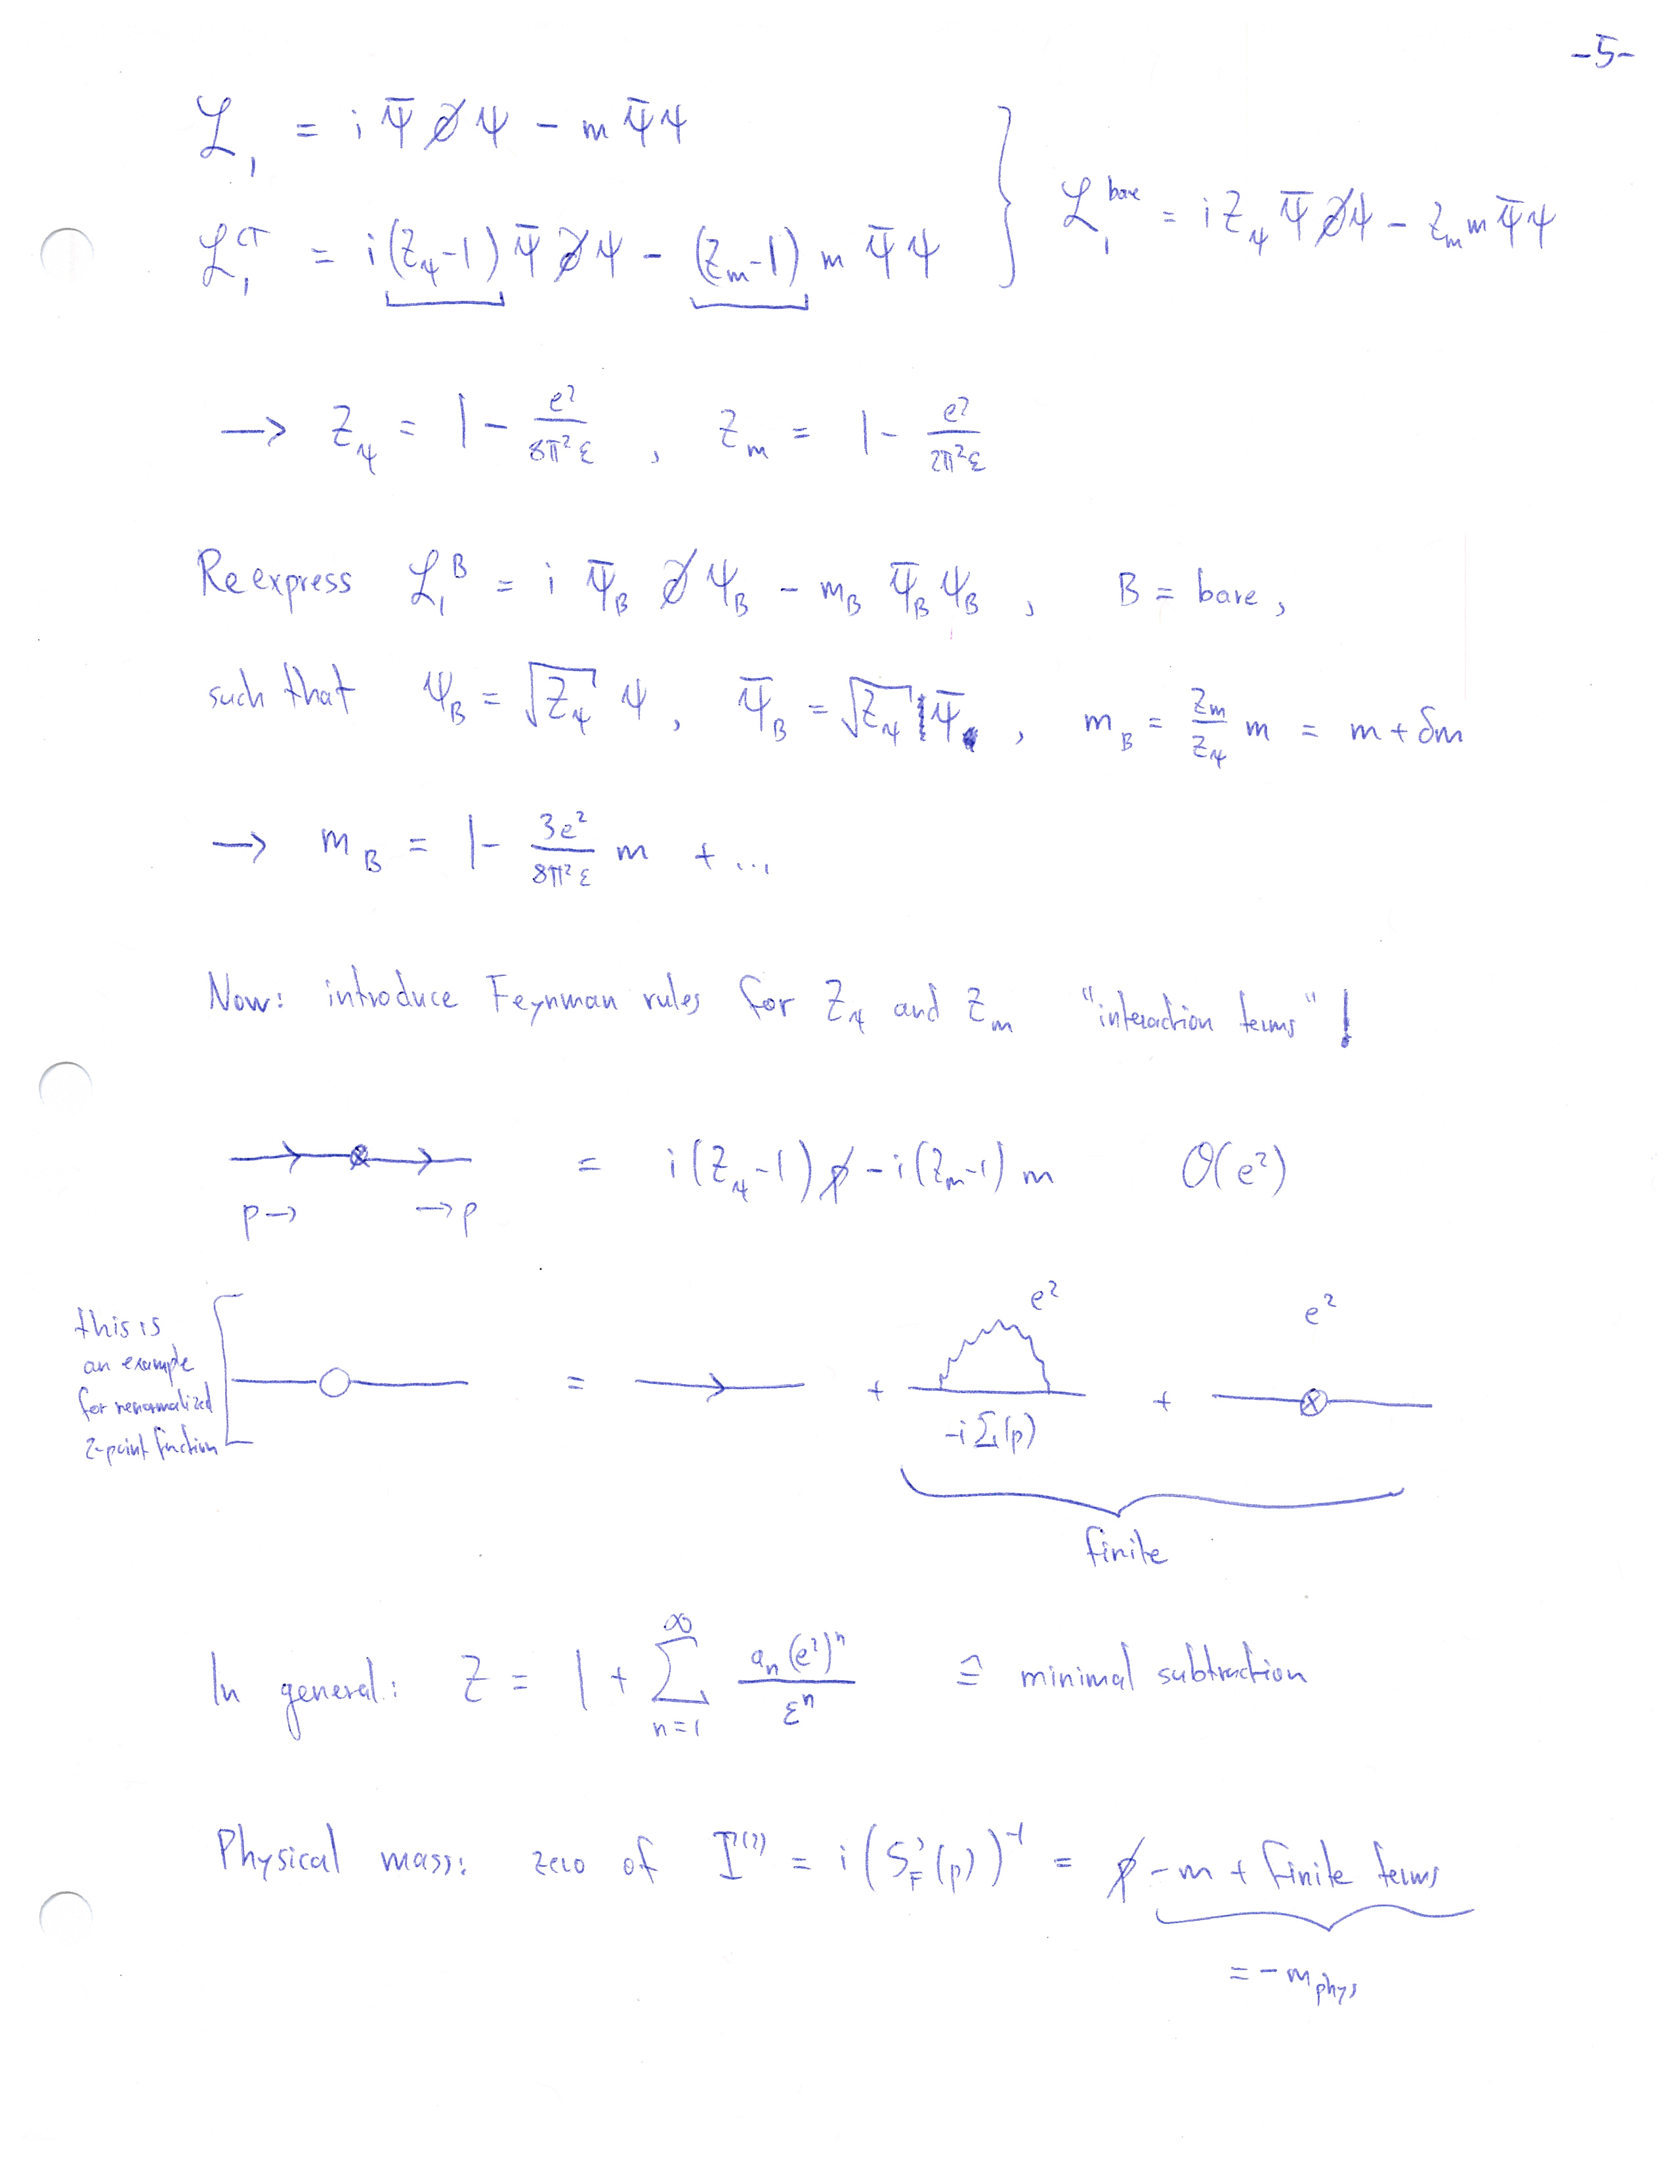 -5-
ℒ₁ = i ψ̄ ∂̸ ψ - m ψ̄ ψ
ℒ₁^CT = i (Z_ψ - 1) ψ̄ ∂̸ ψ - (Z_m - 1) m ψ̄ ψ } ℒ₁^bare = i Z_ψ ψ̄ ∂̸ ψ - Z_m m ψ̄ ψ
→ Z_ψ = 1 - e²/(8π²ε) , Z_m = 1 - e²/(2π²ε)
Reexpress ℒ₁^B = i ψ̄_B ∂̸ ψ_B - m_B ψ̄_B ψ_B , B = bare ,
such that ψ_B = √Z_ψ ψ , ψ̄_B = √Z_ψ ψ̄ , m_B = Z_m/Z_ψ m = m + δm
→ m_B = 1 - 3e²/(8π²ε) m + ...
Now: introduce Feynman rules for Z_ψ and Z_m "interaction terms" !
= i (Z_ψ - 1) p̸ - i (Z_m - 1) m O(e²)
p→ →p
this is
an example
for renormalized
2-point function
= + e² + e²
-iΣ(p)
finite
In general: Z = 1 + Σ_{n=1}^∞ a_n (e²)^n / ε^n ≙ minimal subtraction
Physical mass: zero of Γ^(2) = i (S_F'(p))^-1 = p̸ - m + finite terms
= - m_phys